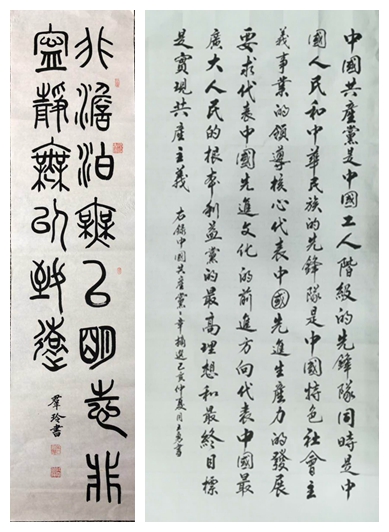 非澹泊無以明志非
寧靜無以致遠
羣玲書
中國共產黨是中國工人階級的先鋒隊同時是中
國人民和中華民族的先鋒隊是中國特色社會主
義事業的領導核心代表中國先進生產力的發展
要求代表中國先進文化的前進方向代表中國最
廣大人民的根本利益黨的最高理想和最終目標
是實現共產主義
右錄中國共產黨々章摘選己亥仲夏月書